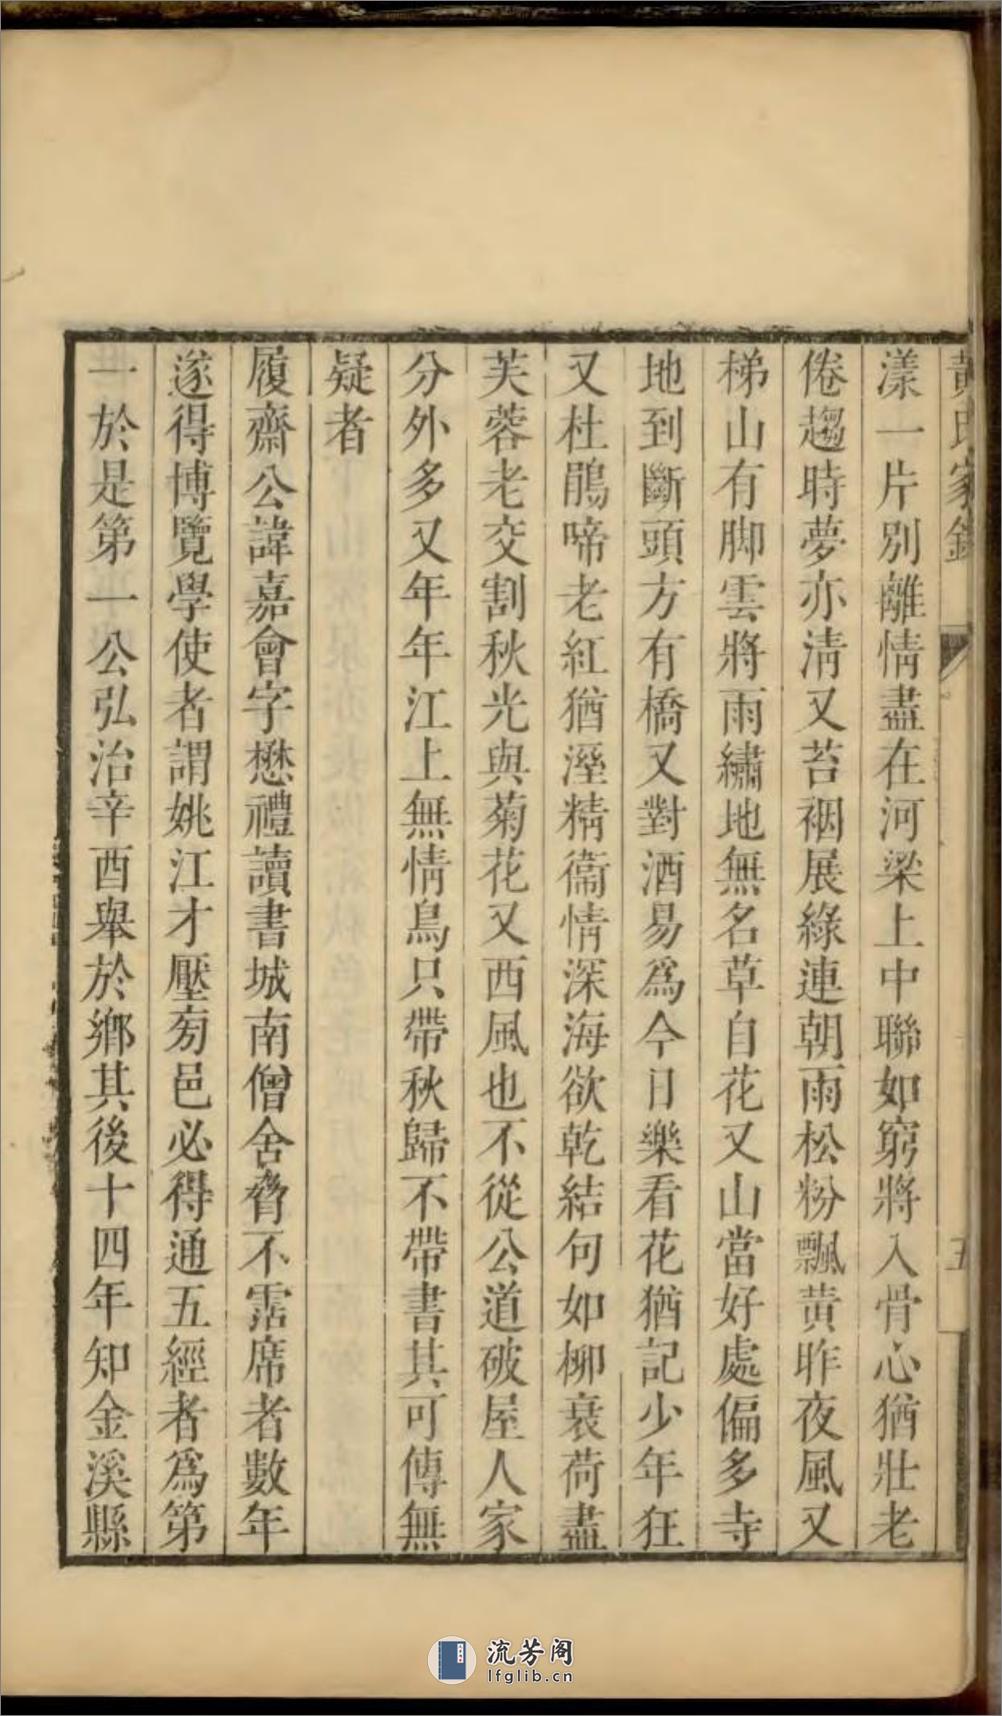 黃氏家錄
五
漾一片別離情盡在河梁上中聯如窮將入骨心猶壯老
倦趨時夢亦淸又苔裀展綠連朝雨松粉飄黃昨夜風又
梯山有脚雲將雨繡地無名草自花又山當好處偏多寺
地到斷頭方有橋又對酒易爲今日樂看花猶記少年狂
又杜鵑啼老紅猶溼精衞情深海欲乾結句如柳衰荷盡
芙蓉老交割秋光與菊花又西風也不從公道破屋人家
分外多又年年江上無情鳥只帶秋歸不帶書其可傳無
疑者
履齋公諱嘉會字懋禮讀書城南僧舍脅不霑席者數年
遂得博覽學使者謂姚江才壓旁邑必得通五經者爲第
一於是第一公弘治辛酉舉於鄉其後十四年知金溪縣
流芳阁
lfglib.cn